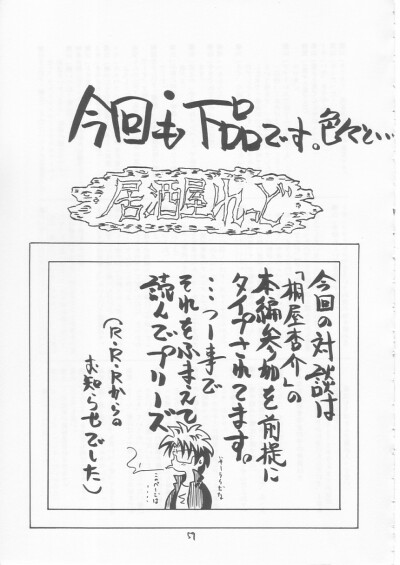 今回も下品です。色々と…
居酒屋れっど
今回の対談は
「桐屋杏介」の
本編参加を前提に
タイプされてます。
…つー事で
それをふまえて
読んでプリーズ
(R・R・Rからの
お知らせでした)
このページは
57